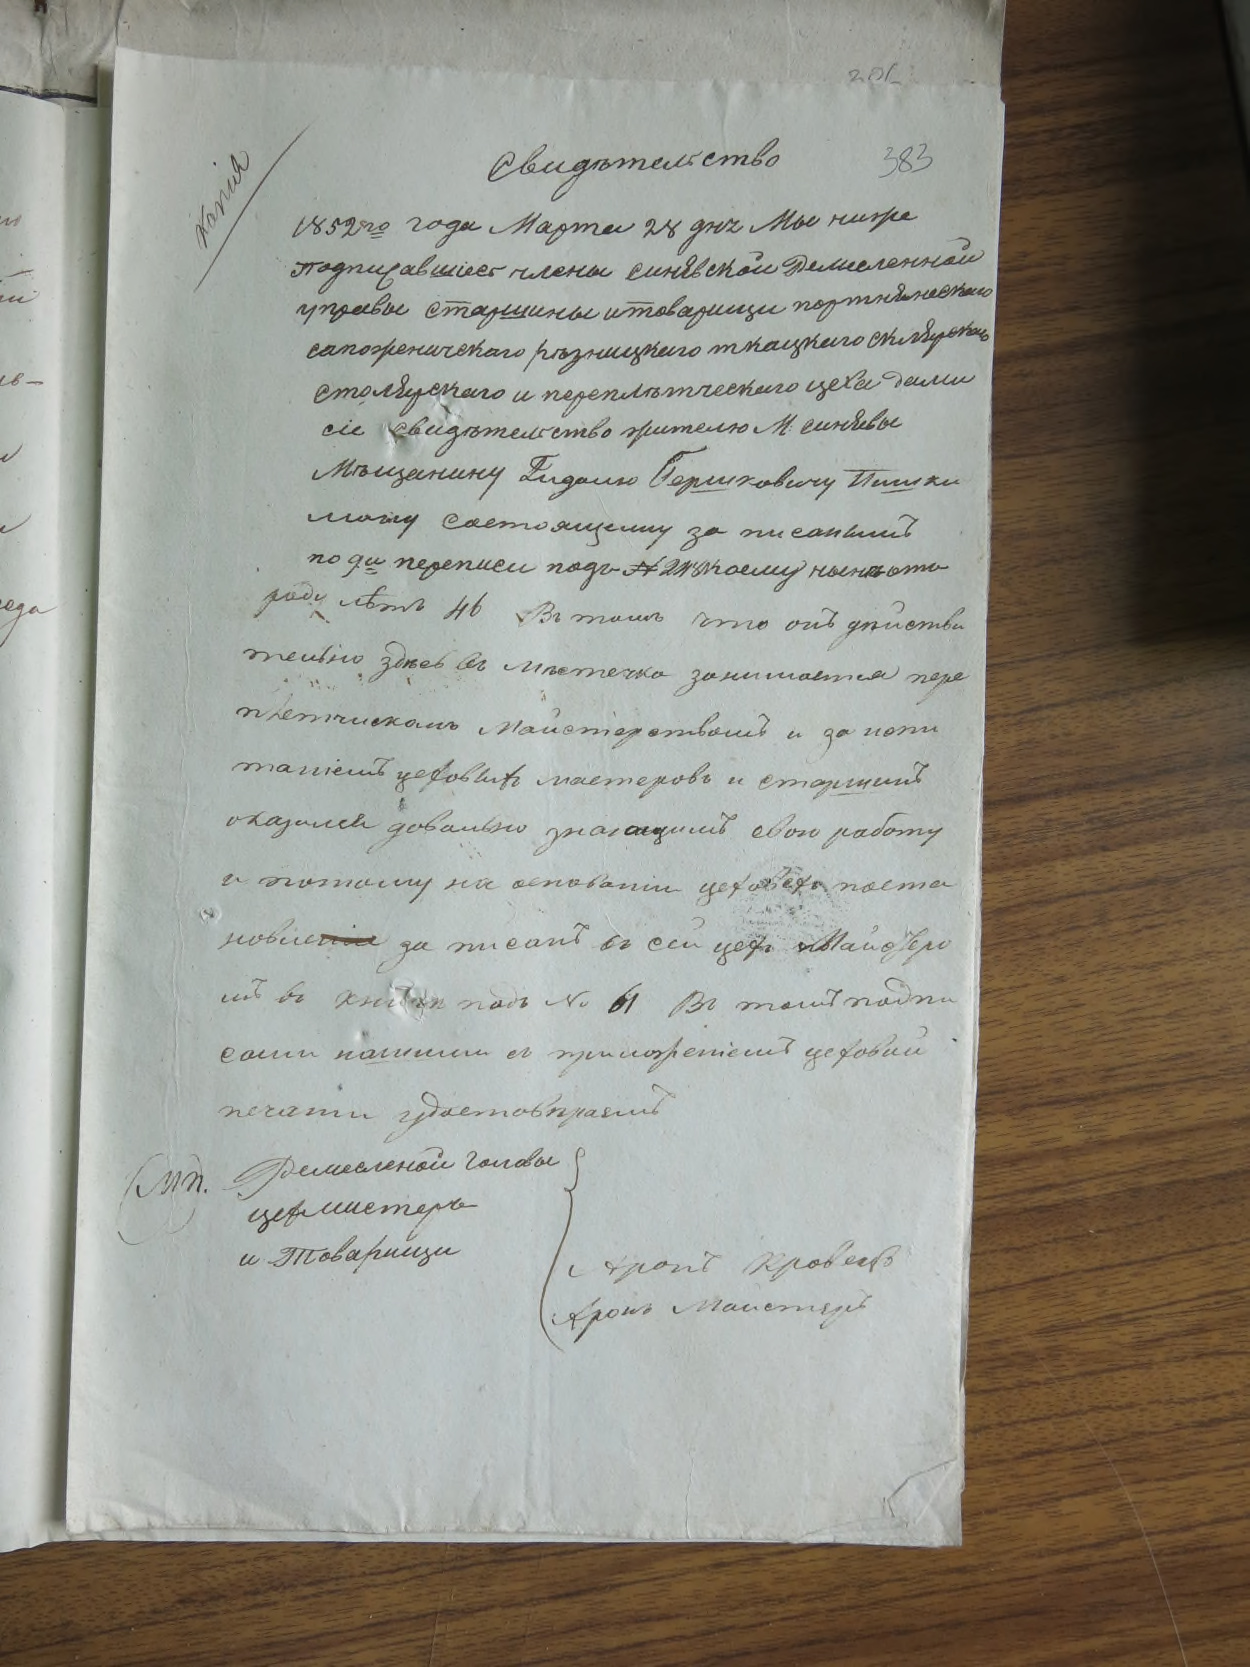 Копія
383
Свидѣтельство
1852го года Марта 28 днѧ Мы ниже
подписавшіес члены синявской Ремесленной
управы старшины и товарищи портняческаго
сапожническаго рѣзницкаго ткацкаго склярскаго
столярскаго и переплѣтческаго цеха дали
сіе свидѣтельство жителю М. синявы
Мѣщанину Гидалю Гершковичу
состоящему за писанымъ
по 9й переписи подъ № коему нынѣ отъ
роду лѣтъ 46 Въ томъ что онъ дѣйстви
тельно здѣсь въ мѣстечко занимается пере
плетчискомъ Майстерствомъ и за испи
таніемъ цеховыхъ мастеровъ и старшинъ
оказался довольно знающимъ свою работу
и потому на основаніи цеховехъ поста
новленіе за писанъ въ сей цехъ Майстеро
мъ въ книгѣ подъ № 61 Въ томъ подпи
сами нашими съ приложеніемъ цеховой
печати удостовѣраемъ
(М.П. Ремесленой головы
цехмистеръ
и Товарищи
Аронъ Кравецъ
Аронъ Майстеръ